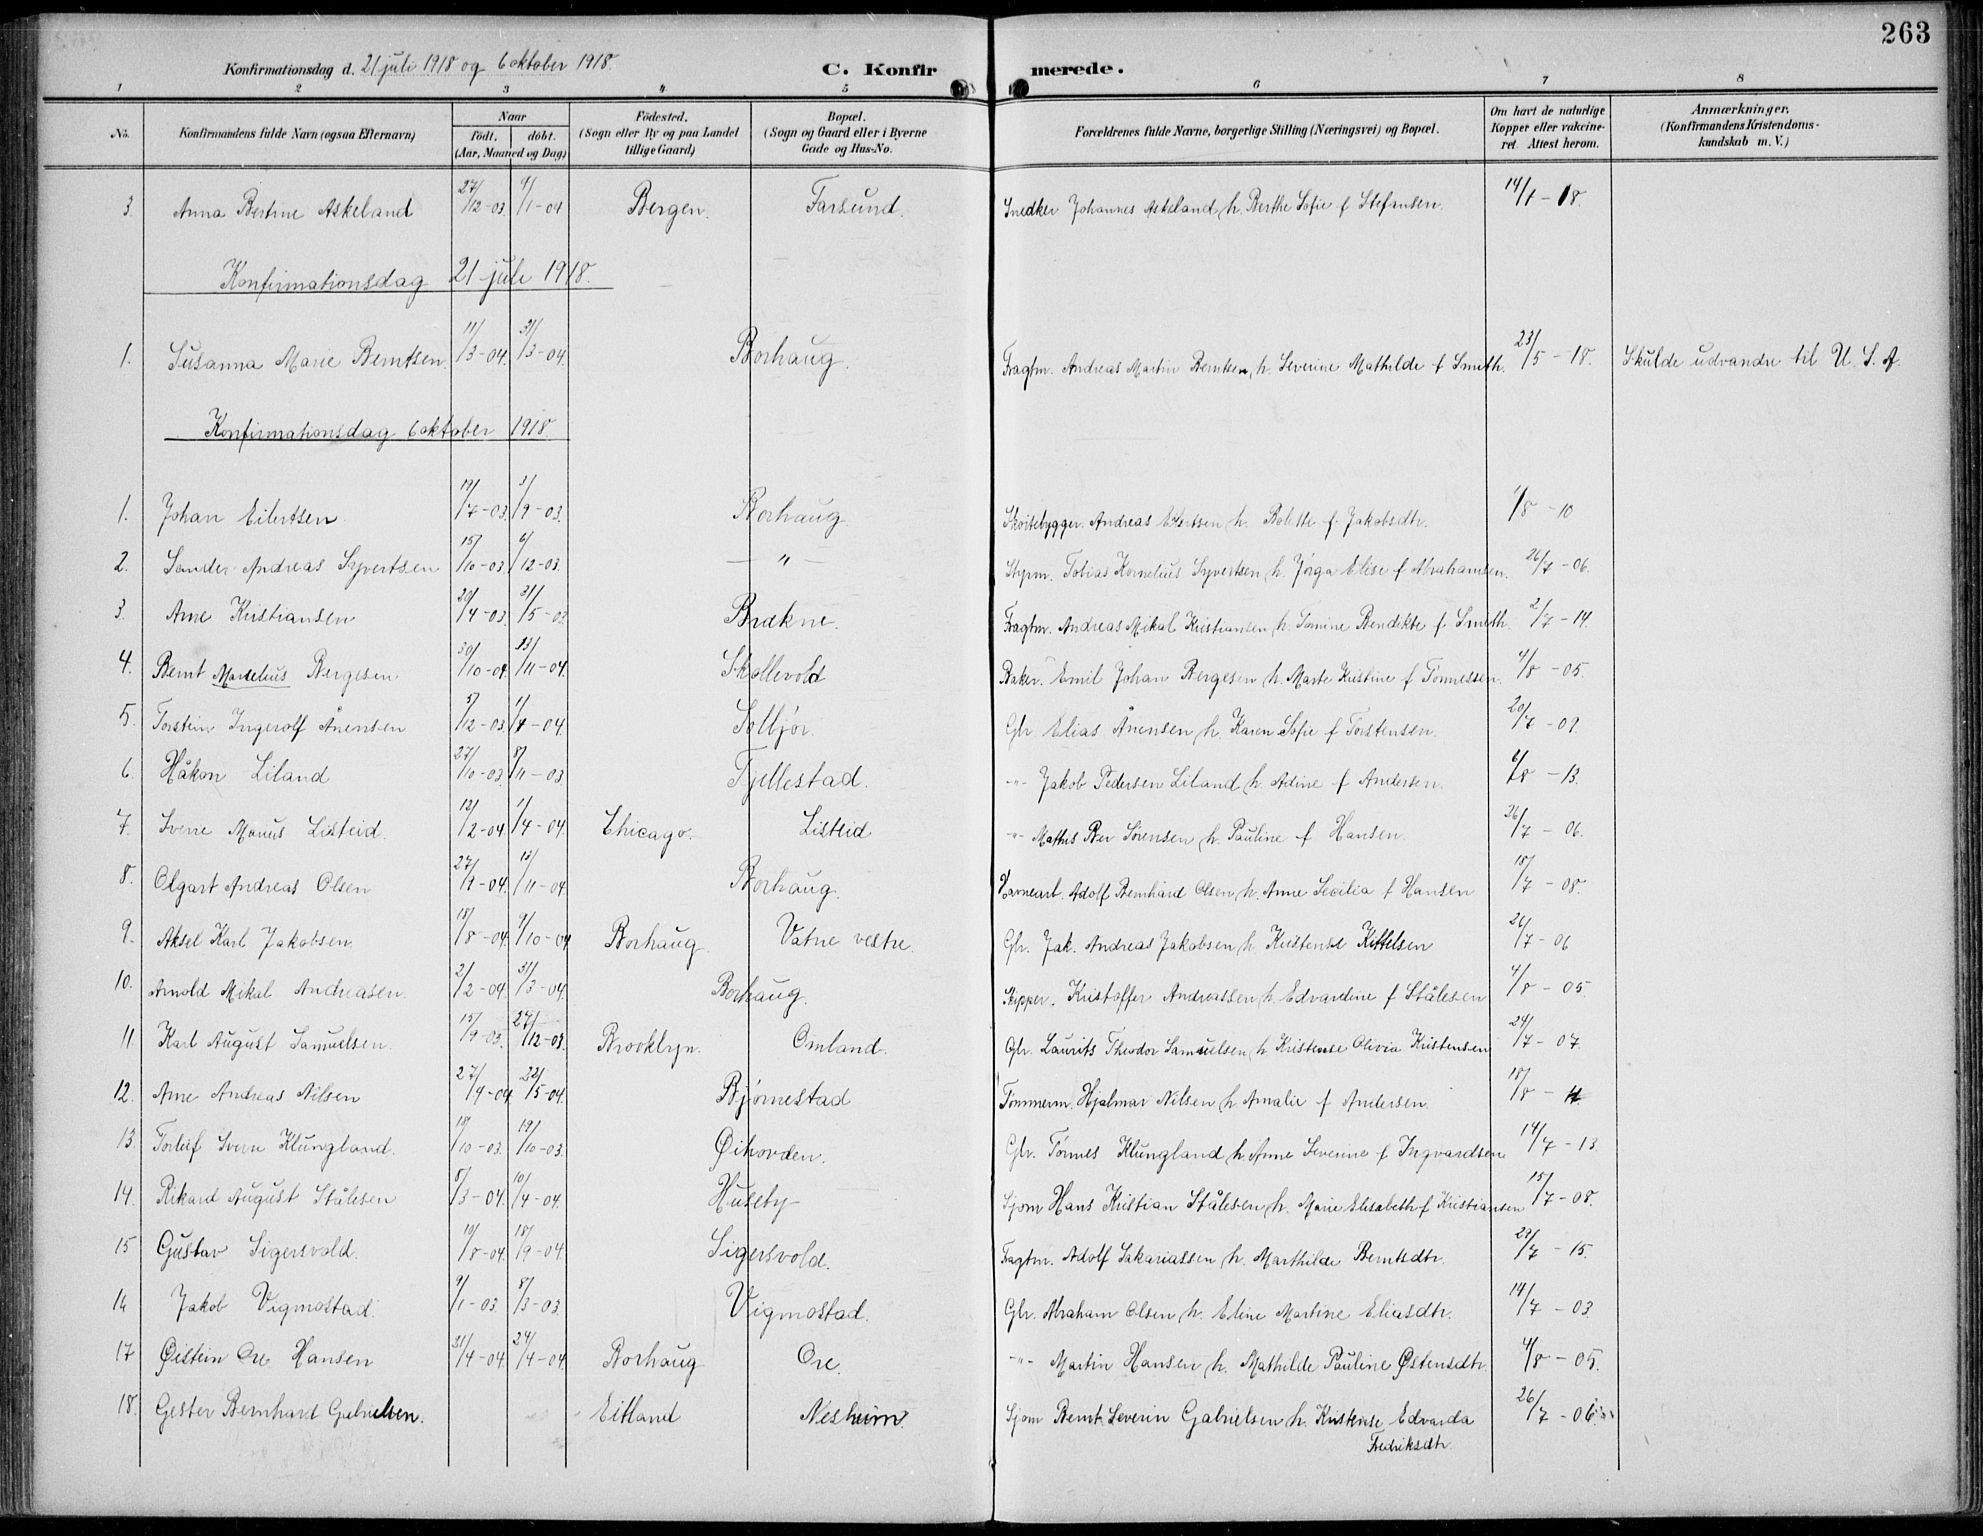 263
Konfirmationsdag d. 21 juli 1918 og 6 oktober 1918.
C. Konfirmerede.
1 2 3 4 5 6 7 8
No. Konfirmandens fulde Navn (ogsaa Efternavn) Naar født. døbt. (Aar, Maaned og Dag) Fødested. (Sogn eller By og paa Landet tillige Gaard) Bopæl. (Sogn og Gaard eller i Byerne Gade og Hus-No. Forældrenes fulde Navne, borgerlige Stilling (Næringsvei) og Bopæl. Om havt de naturlige Kopper eller vakcineret. Attest herom. Anmærkninger. (Konfirmandens Kristendomskundskab m. V.)
3. Anna Bertine Askeland 27/12-03. 4/1-04 Bergen. Farsund. Snedker Johannes Askeland, h. Berthe Sofie f Stefansen. 14/1-18.
Konfirmationsdag 21 juli 1918.
1. Susanna Marie Berntsen. 11/3-04. 31/3-04. Borhaug. Fragtm. Andreas Martin Berntsen, h. Severine Mathilde f Smith. 23/5-18. Skulde udvandre til U. S. A.
Konfirmationsdag 6 oktober 1918.
1. Johan Eilertsen 19/7-03. 3/9-03. Borhaug. Skøitebygger. Andreas Eilertsen h. Bolette f. Jakobsdtr. 1/8-10
2. Sander Andreas Syvertsen 15/10-03. 6/12-03. — " — Styrm. Tobias Kornelius Syvertsen, h. Jørga Elise f Abrahamsen. 26/7-06.
3. Arne Kristiansen 20/4-03. 31/5-03 Brækne. Fragtm. Andreas Mikal Kristiansen, h. Tomine Bendikte f Smith. 2/7-14.
4. Bernt Marselius Bergesen 30/10-04. 13/11-04. Skollevold Baker. Emil Johan Bergesen, h. Marte Kristine f Tønnessen. 4/8-05.
5. Torstein Ingerolf Ånensen 5/12-03. 1/4-04. Solbjør. Gbr. Elias Ånensen, h. Karen Sofie f Torstensen. 20/7-09.
6. Håkon Liland 27/10-03. 8/11-03. Fjellestad. -"- Jakob Pedersen Liland, h. Adine f Andersen. 6/8-13.
7. Sverre Marius Listeid. 12/2-04. 1/4-04. Chicago. Listeid -"- Mathis Ber Sørensen, h. Pauline f Hansen. 26/7-06.
8. Olgart Andreas Olsen 27/9-04. 13/11-04. Borhaug. Havnearb. Adolf Bernhard Olsen, h. Anne Secilia f Hansen 18/7-08.
9. Aksel Karl Jakobsen. 18/8-04. 9/10-04. Borhaug. Vatne vestre. Gbr. Jak. Andreas Jakobsen, h. Kristense Kittelsen 26/7-06
10. Arnold Mikal Andreasen. 2/2-04. 31/3-04. Borhaug. Skipper. Kristoffer Andreassen, h. Edvardine f Stålesen 4/8-05.
11. Karl August Samuelsen. 15/9-03. 27/12-03. Brooklyn. Omland. Gbr. Laurits Theodor Samuelsen, h Kristense Olivia Kristensen 24/7-07.
12. Arne Andreas Nilsen 27/4-04 22/5-04. Bjørnestad Tømmerm. Hjalmar Nilsen h Amalie f Andersen. 18/8-
13. Torleif Sverre Klungland. 10/10-03. 19/10-03. Øihovden. Gbr. Tønnes Klungland h. Anne Severine f Ingvardsen 14/7-13.
14. Rikard August Stålesen 5/3-04. 10/4-04. Huseby- Sjøm Hans Kristian Stålesen, h. Marie Elisabeth f Kristiansen 15/7-08.
15 Gustav Sigersvold. 19/8-04. 18/9-04. Sigersvold. Fragtm. Adolf Sakariassen, h. Marthilde Berntsdtr. 29/7-15.
16 Jakob Vigmostad. 9/1-03 8/3-03. Vigmostad. Gbr. Abraham Olsen, h. Eline Martine Eliasdtr. 14/7-03.
17 Øistein Ore Hansen 31/4-04. 24/4-04. Borhaug Ore. -"- Martin Hansen, h. Mathilde Pauline Østensdtr. 4/8-05.
18. Gester Bernhard Gabrielsen. Eitland Nesheim. Sjøm Bernt Severin Gabrielsen h. Kristense Edvarda 26/7-06.
Fredriksdtr.